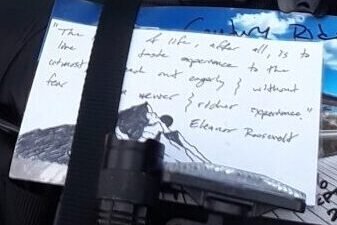 Century Rid
"The of life, after all, is to
live taste experience to the
utmost out eagerly & without
fear newer & richer experience."
Eleanor Roosevelt